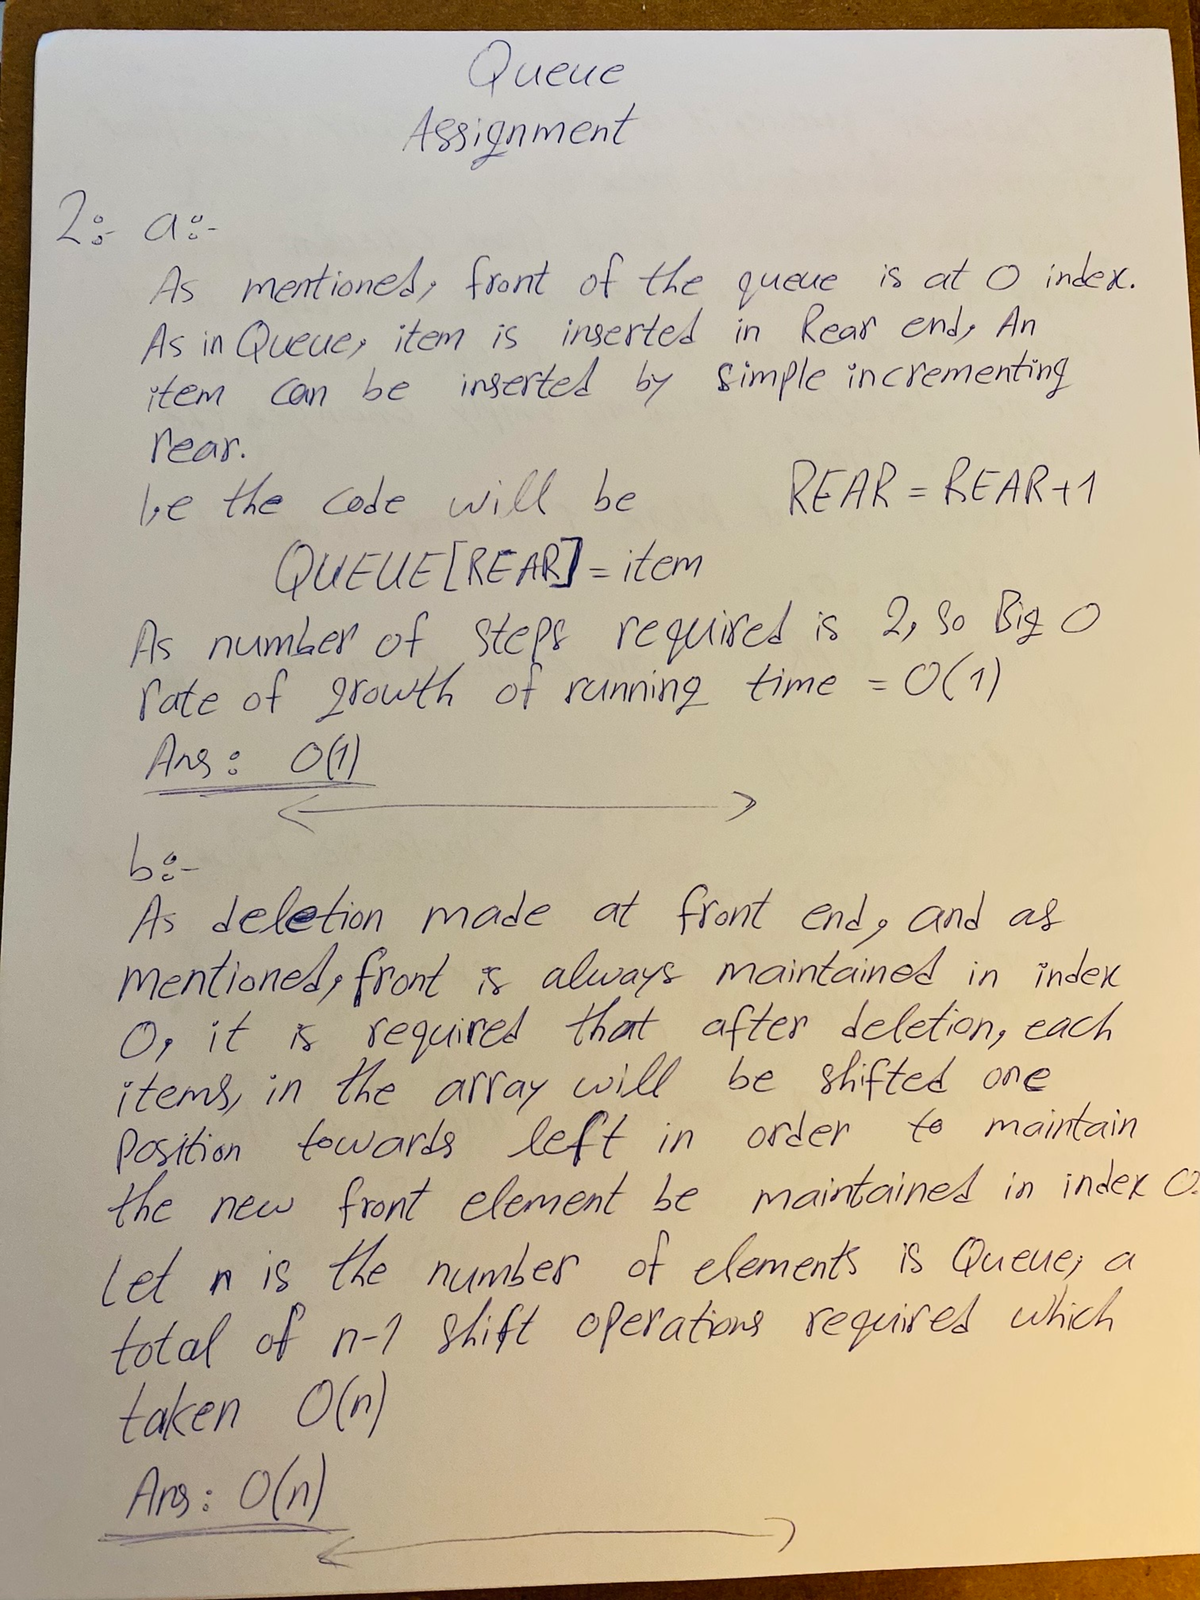 Queue
Assignment
2:- a:-
As mentioned, front of the queue is at 0 index.
As in Queue, item is inserted in Rear end, An
item can be inserted by simple incrementing
rear.
i.e the code will be REAR = REAR+1
QUEUE[REAR] = item
As number of steps required is 2, so Big O
rate of growth of running time = O(1)
Ans: O(1)
b:-
As deletion made at front end, and as
mentioned, front is always maintained in index
0, it is required that after deletion, each
items, in the array will be shifted one
position towards left in order to maintain
the new front element be maintained in index 0.
Let n is the number of elements is Queue, a
total of n-1 shift operations required which
taken O(n)
Ans: O(n)